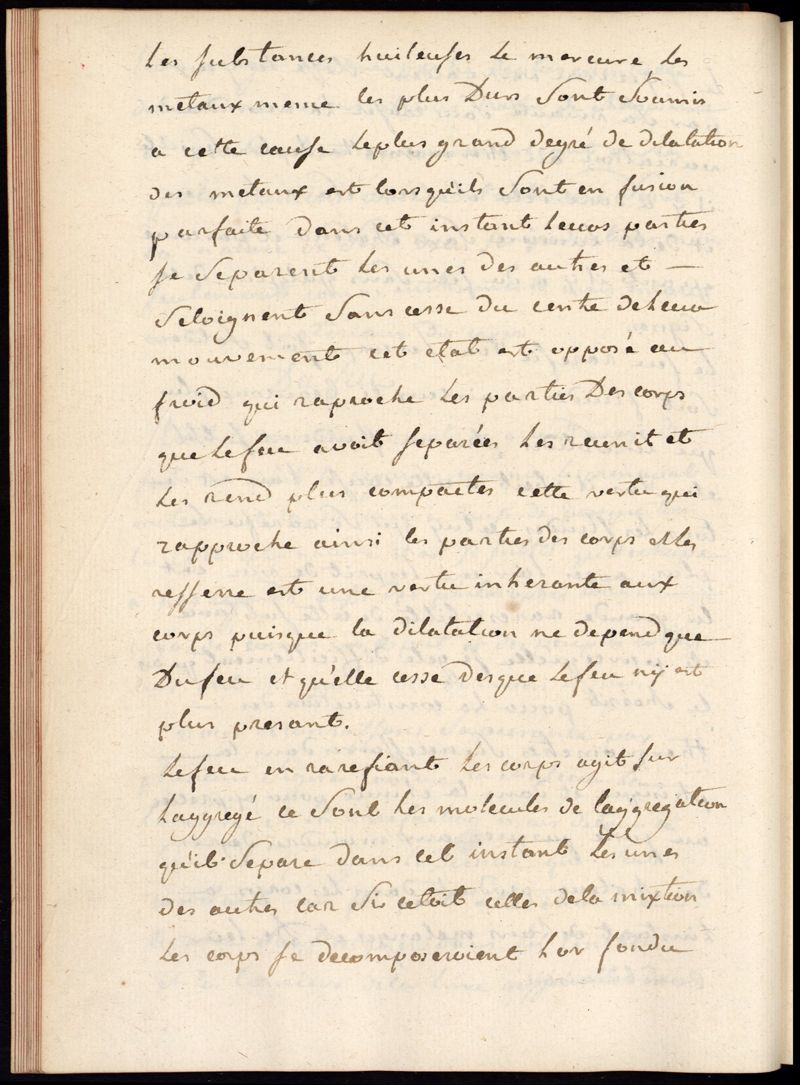 les substances huileuses le mercure les
metaux meme les plus Durs Sont Soumis
a cette cause le plus grand degré de dilatation
des metaux est lorsqu'ils Sont en fusion
parfaite dans cet instant leurs parties
se Separent les unes des autres et —
Seloignent Sans cesse du centre de leur
mouvement cet etat est opposé au
froid qui raproche les parties Des corps
que le feu avoit separées les reunit et
les rend plus compactes cette vertu qui
rapproche ainsi les parties des corps et les
resserre est une vertu inherante aux
corps puisque la dilatation ne depend que
Du feu et qu'elle cesse des que le feu ny est
plus presant.
le feu en rarefiant les corps agit sur
laggregé ce Sont les molecules de laggregation
qu'il Separe dans cet instant les unes
des autres car Sis cetoit celles de la mixtion
les corps se decomposeroient lor fondu